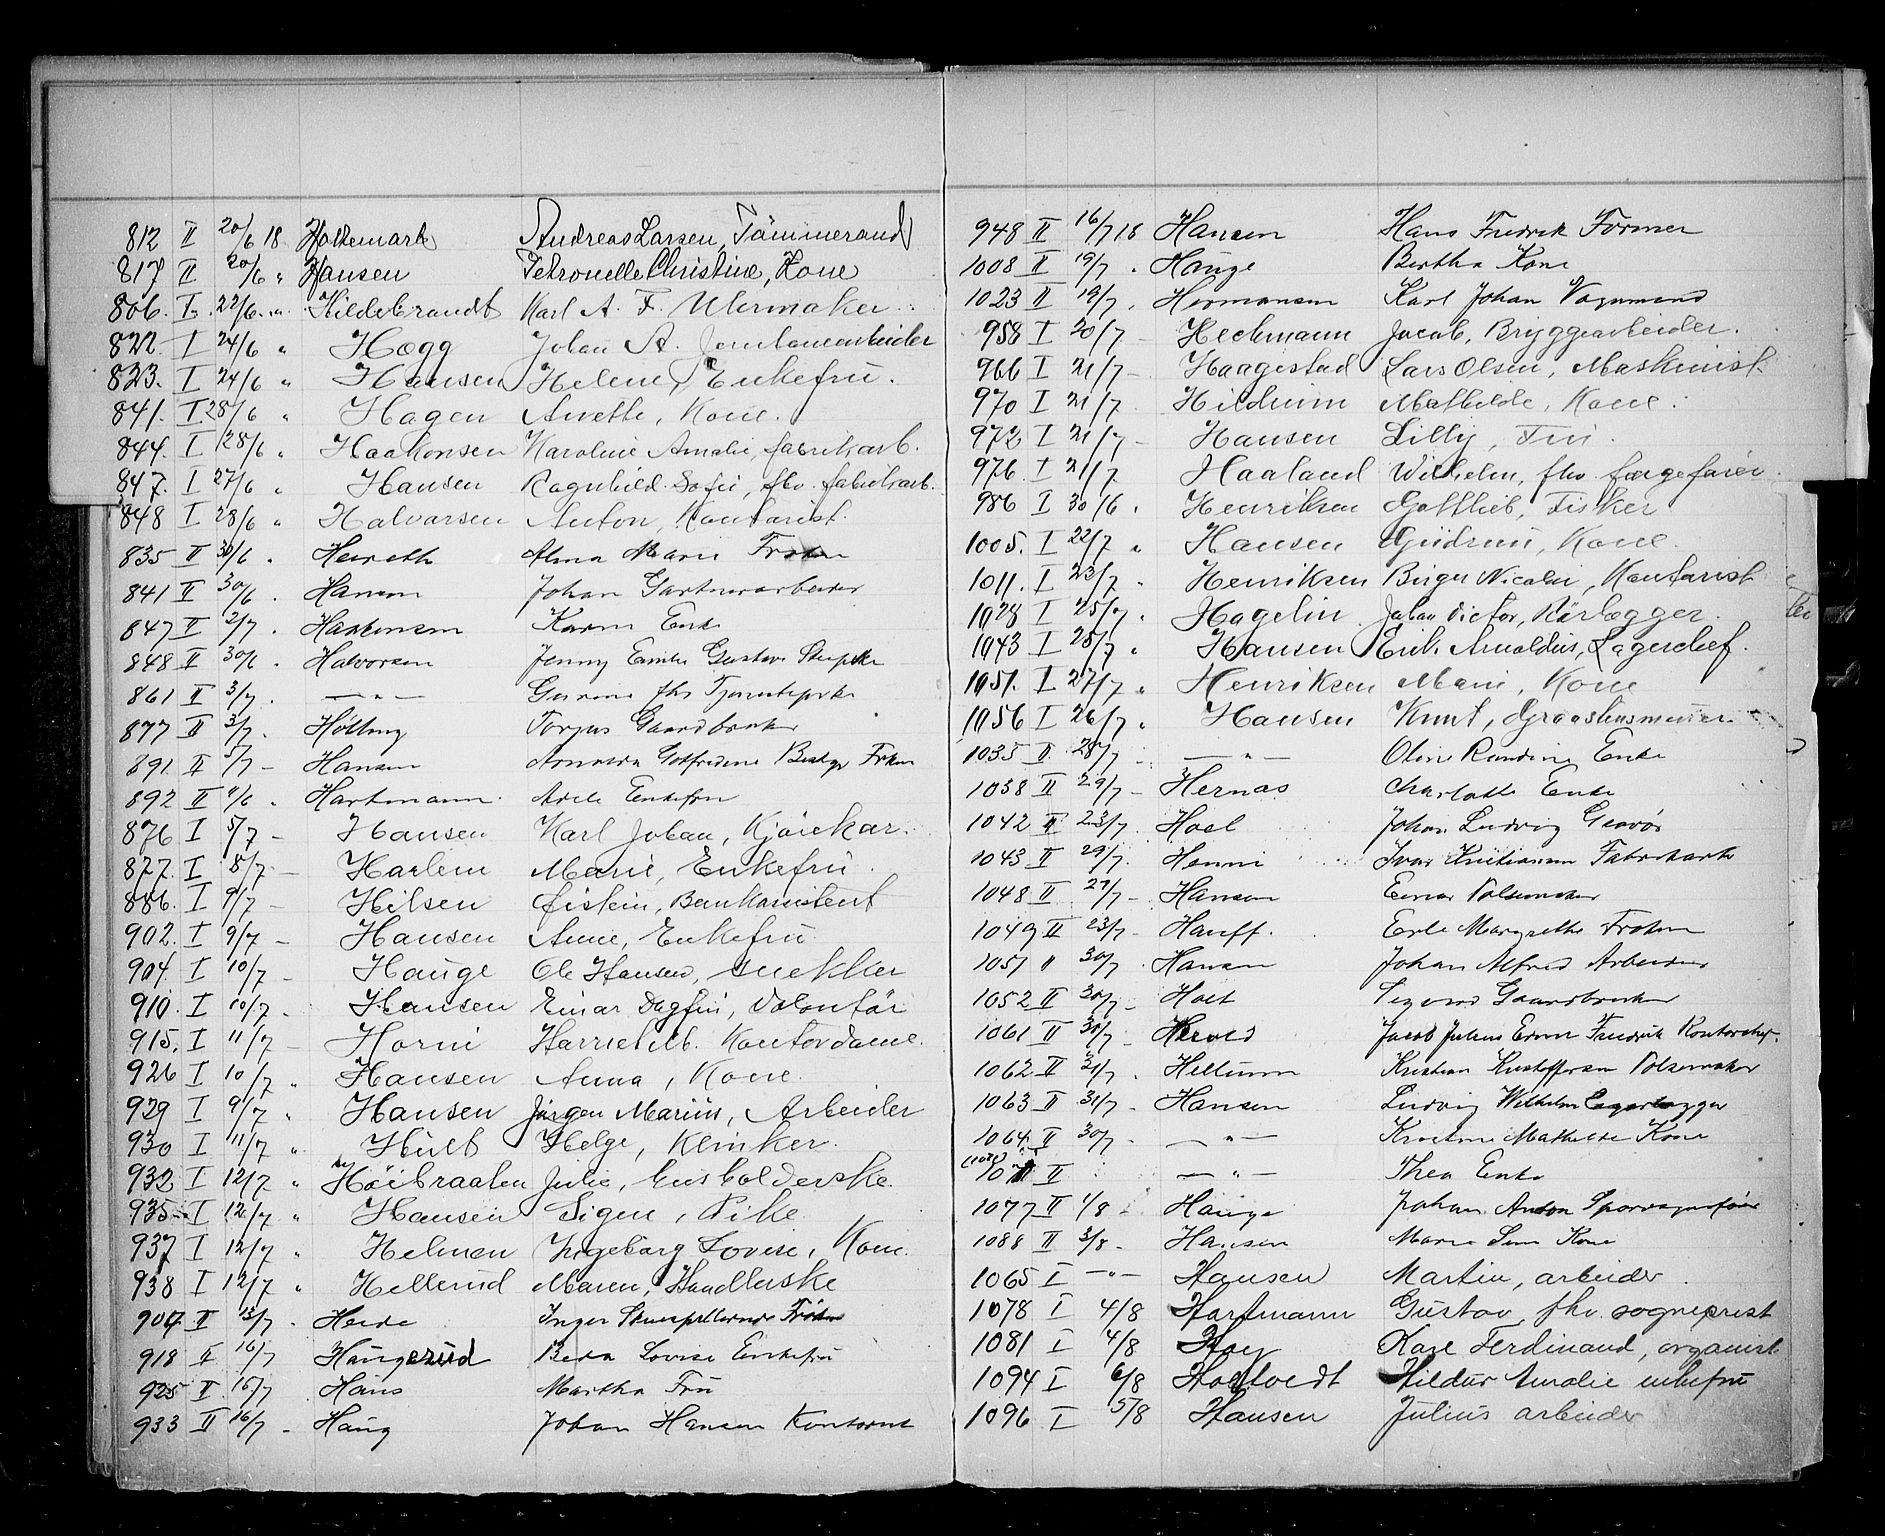 812 II 20/6 18 Holtemark Andreas Larsen, Tömmermand
817 II 20/6 " Hansen Petronelle Christine, Kone
806. I. 22/6 " Hildebrandt Karl A. F. Uhrmaker
822. I 24/6 " Høgg Johan A. Jernbanearbeider
823. I 24/6 " Hansen Helene, Enkefru.
841. I. 25/6 " Hagen Anette, Kone.
844. I 28/6 " Haakonsen Karoline Amalie, fabrikarb.
847. I 27/6 " Hansen Ragnhild Sofie, fhv. fabrikarb.
848 I 28/6 " Halvorsen Anton, Kontorist.
835 II 30/6 " Alma Marie Frøken
841 II 30/6 . Hansen Johan Gartnerarbeider
847 II 2/7 . Haakensen Karen Enke
848 II 30/6 . Halvorsen Jenny Emilie Gustava
861 II 3/7 . — " — fhv
877 II 3/7 . Torjus Gaardbruker
891 II 5/7 — Hansen Gotfredine Frken
892 II 4/6 . Hartmann. Adele Enkefru
876 I 5/7 — Hansen Karl Johan, Kjørekar.
877. I 8/7 — Harlem Marie, Enkefru.
886. I 9/7 — Hilsen Øistein, Bankassistent
902. I 9/7 — Hansen Anne, Enkefru
904. I 10/7 — Hauge Ole Hansen, snekker
910. I 10/7 . Hansen Einar Dagfin, Volontør
915. I 11/7 — Horni Harriet M. Kontordame.
926 I 10/7 " Hansen Anna, Kone.
929 I 9/7 " Hansen Jørgen Marius, Arbeider
930 I 11/7 " Hult Helge, Klinker.
932 I 12/7 " Høibraaten Julie, Husholderske.
935 I 12/7 " Hansen Signe, Pike.
937 I 12/7 " Helmen Ingeborg Lovise, Kone.
938 I 12/7 " Hellerud Maren, Handlerske
904 II 13/7 . Heide Inger Skuespillerinde Frøken
918 II 16/7 Haugerud Berta Lovise Enkefru
925 II 16/7 Hans Martha Fru
933 II 16/7 — Haug Johan Hansen Kontorist
948 II 16/7 18 Hansen Hans Fredrik Former
1008 II 19/7 . Hauge Bertha Kone
1023 II 19/7 . Hermansen Karl Johan Vognmand
958 I 20/7 — Heckmann Jacob, Bryggearbeider.
966 I 21/7 — Haagestad Lars Olsen, Maskinist.
970 I 21/7. Hildrum Mathilde, Kone.
972 I 21/7 — Hansen Lilly, Fru.
976 I 21/7 Haaland Wilhelm, fhv. færgefører.
986 I 30/6 . Henriksen Gottlieb, Fisker
1005. I 22/7 " Hansen Gudrun, Kone.
1011. I 23/7 " Henriksen Birger Nicolai, Kontorist
1028 I 25/7 . Hagelin Johan Victor, Rørlægger.
1043 I 25/7 " Hansen Erik Arnoldus, Lagerchef.
1051. I 27/7 " Henriksen Marie, Kone
1056 I 26/7 " Hansen Knut,
1035 II 28/7 — — " — Oline Randine Enke
1038 II 29/7 — Hernæs Charlotte Enke
1042 II 23/7 . Hoel Johan Ludvig Gravør
1043 II 29/7. Henni Ivar Kristiansen Fabrikarb
1048 II 27/7 — Hansen Einar Pølsemaker
1049 II 23/7 — Hauff. Erle Margrethe Frøken
1051 " 30/7 . Hansen Johan Alfred Arbeider
1052 II 30/7 — Holt Sigvard Gaardbruker
1061 II 30/7 — Herold Jacob Julius Fredrik Kontorchef.
1062 II 31/7 . Hellum Kristian Kristoffersen Pølsemaker
1063 II 31/7 . Hansen Ludvig Wilhelm
1064 II 30/7 . — " — Mathilde Kone
II — " — Thea Enke
1077 II 1/8 — Hauge Johan Anton Sporvognsfører
1088 II 3/8 — Hansen Marie Kone
1065 I —"— Hansen Martin, arbeider.
1078 I 4/8 Hartmann Gustav, fhv. sogneprest
1081 I 4/8 Karl Ferdinand, organist
1094 I 6/8 Holtvedt Hildur Amalie enkefru
1096 I 5/8 Hansen Julius arbeider